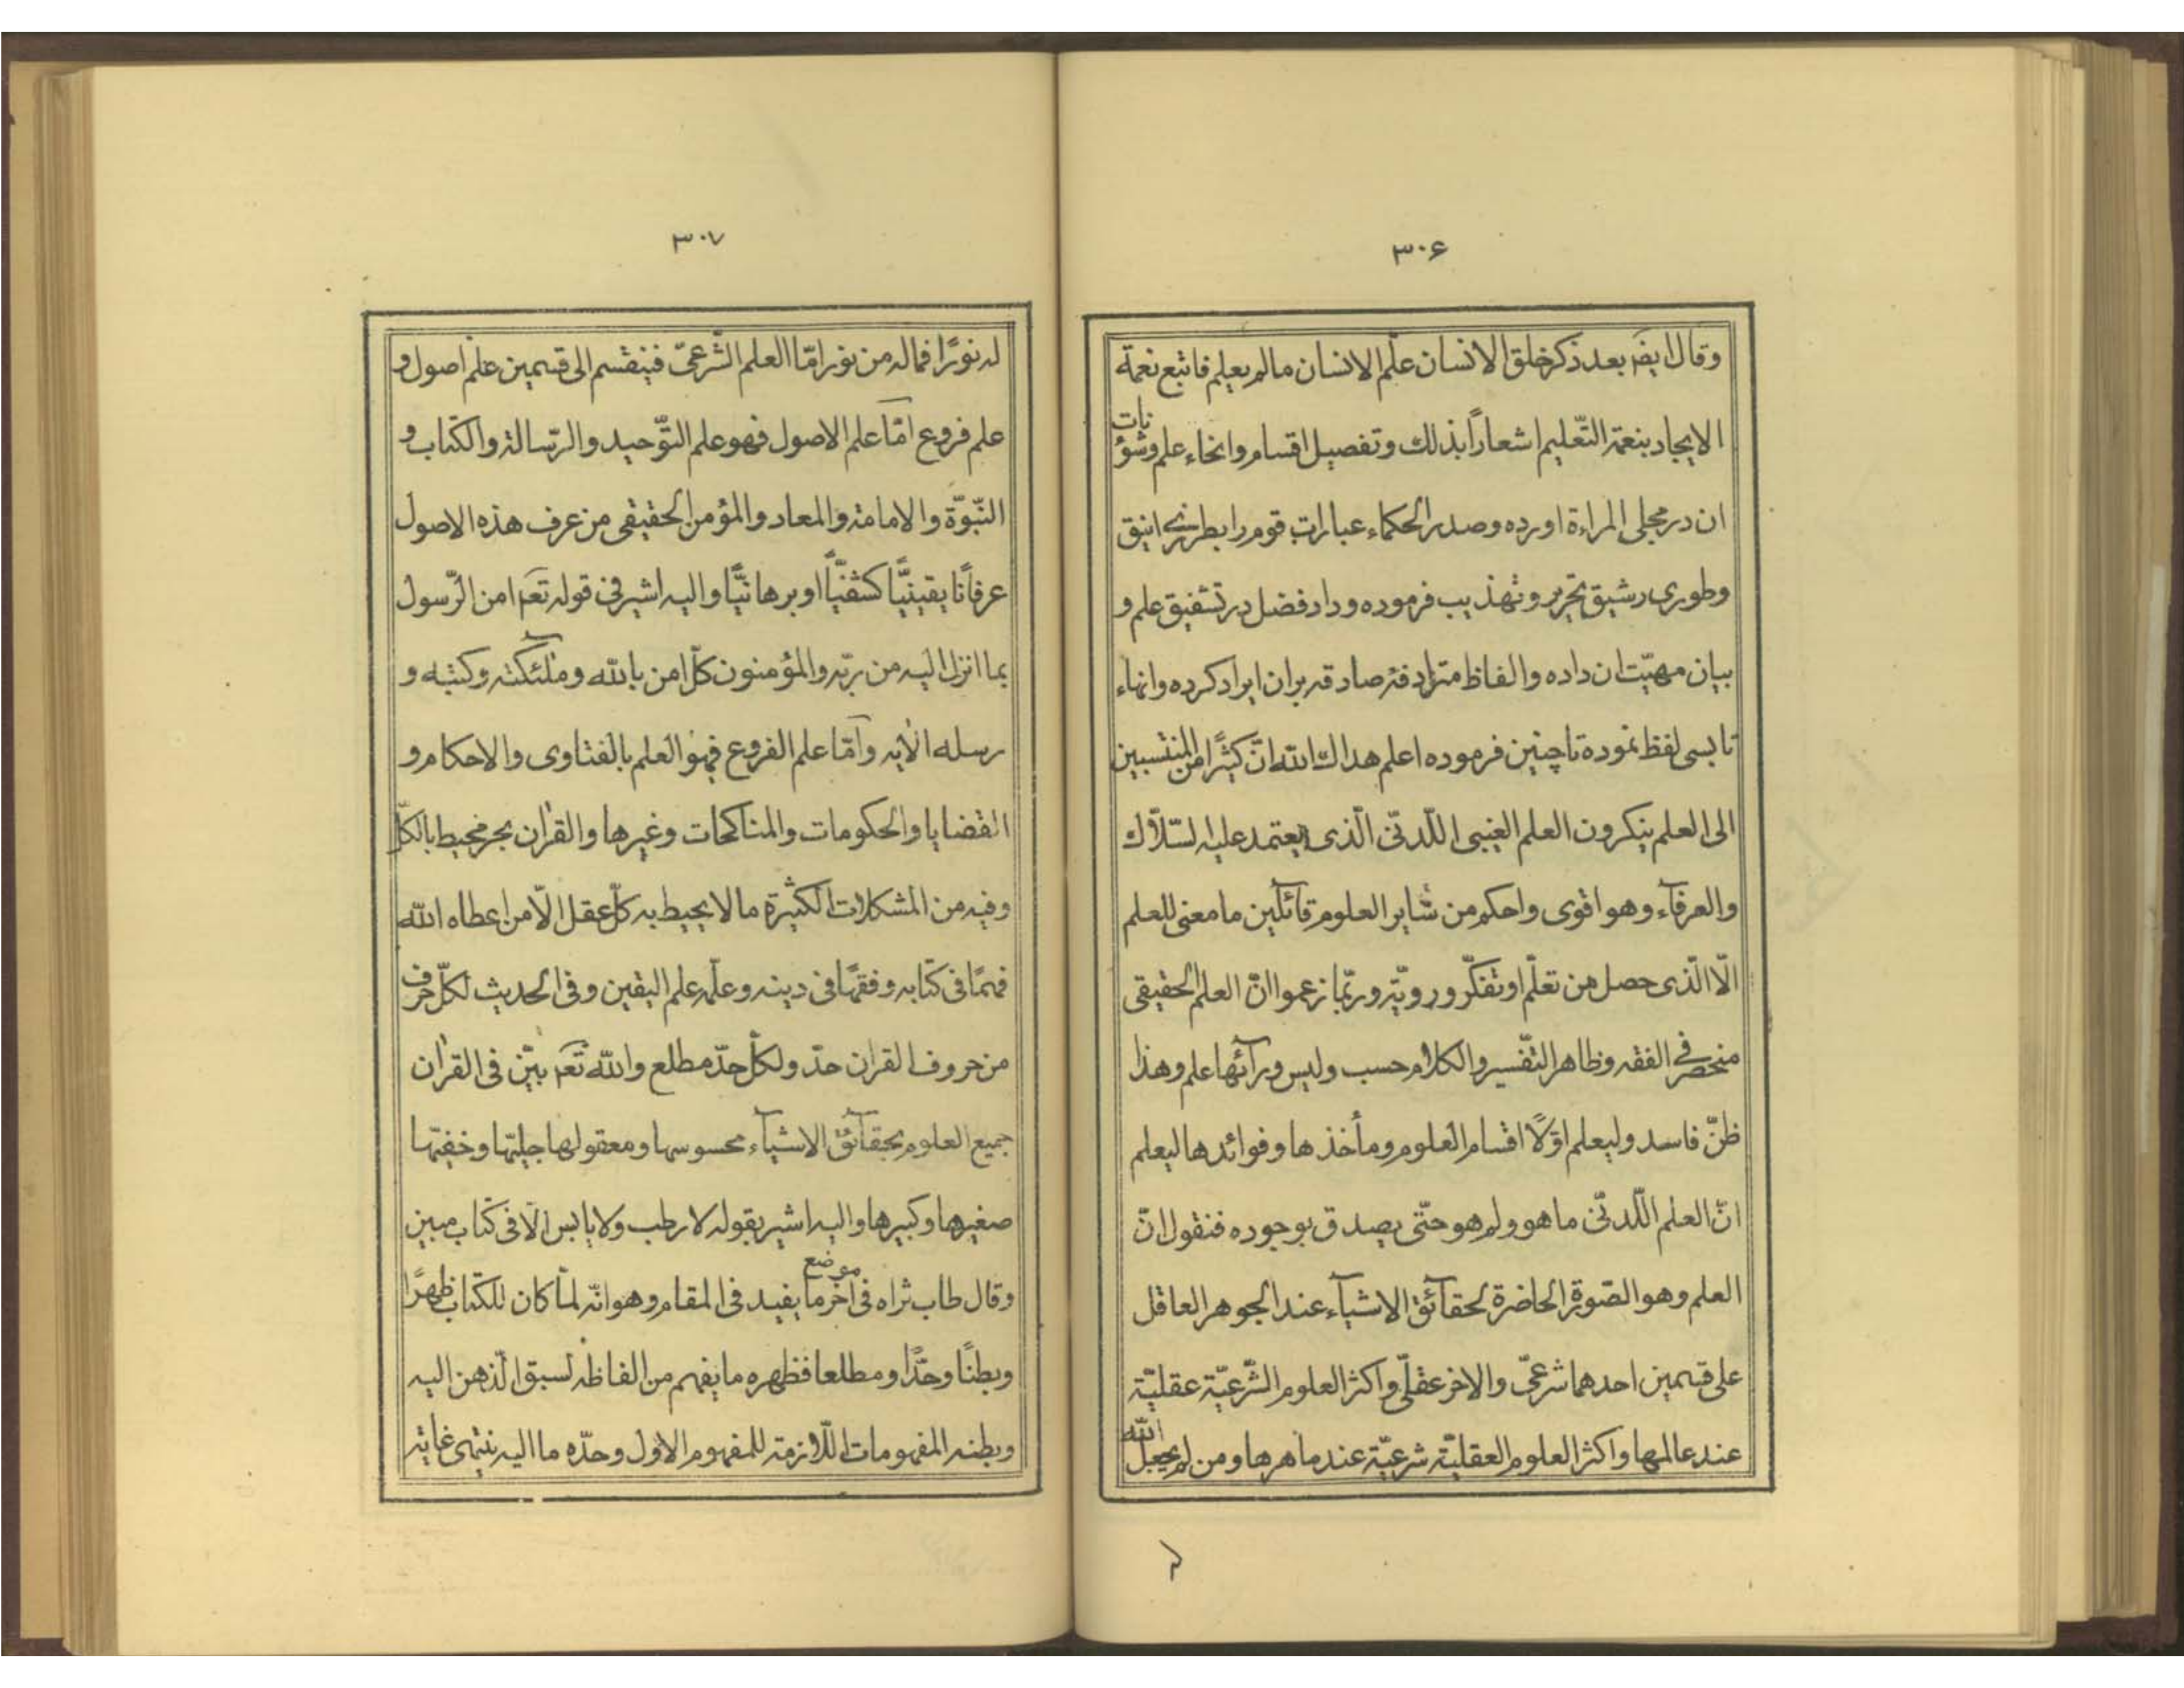 ۳۰۶
وقال ایضَمْ بعد ذکر خلق الانسان علّم الانسان مالم یعلم فاتبع نعمة
الایجاد بنعمة التّعلیم اشعاراً بذلك وتفصیل اقسام وانحاء علم وشؤنات
ان در مجلی المراءة اورده وصدر الحکماء عبارات قوم را بطرزی انیق
وطوری رشیق تحریر و تهذیب فرموده و داد فضل در تشقیق علم و
بیان مهیّت ان داده والفاظ مترادفه صادقه بران ایراد کرده وانهاء
تا بسی لفظ نموده تا چنین فرموده اعلم هداك الله انّ کثیرًا من المنتسبین
الی العلم ینکرون العلم الغیبی اللّدنّی الّذی یعتمد علیه السّلّاك
والعرفآء وهو اقوی واحکم من سایر العلوم قائلین ما معنی للعلم
الّا الّذی حصل من تعلّم او تفکّر و رویّه وربّما زعموا انّ العلم الحقیقی
منحصر فی الفقه وظاهر التّفسیر والکلام حسب ولیس ورآئها علم وهذا
ظنّ فاسد ولیعلم اوّلًا اقسام العلوم ومأخذها وفوائدها لیعلم
انّ العلم اللّدنّی ما هو ولم هو حتّی یصدق بوجوده فنقول انّ
العلم وهو الصّورة الحاضرة لحقآئق الاشیآء عند الجوهر العاقل
علی قسمین احدهما شرعیّ والاخر عقلیّ واکثر العلوم الشّرعیّة عقلیّة
عند عالمها واکثر العلوم العقلیّة شرعیّة عند ماهرها ومن لم یجعل الله
۳۰۷
له نورًا فماله من نور امّا العلم الشّرعیّ فینقسم الی قسمین علم اصول و
علم فروع امّا علم الاصول فهو علم التّوحید والرّسالة والکتاب و
النّبوّة والامامة والمعاد والمؤمن الحقیقی من عرف هذه الاصول
عرفانًا یقینیًّا کشفیًّا او برهانیًّا والیه اشیر فی قوله تعَمْ امن الرّسول
بما انزل الیه من ربّه والمؤمنون کلّ امن بالله وملٰئکته وکتبه و
رسله الآیه وامّا علم الفروع فهو العلم بالفتاوی والاحکام و
القضایا والحکومات والمناکحات وغیرها والقران بحر محیط بالکلّ
وفیه من المشکلات الکثیرة ما لا یحیط به کلّ عقل الّا من اعطاه الله
فهمًا فی کتابه وفقهًا فی دینه وعلّمه علم الیقین وفی الحدیث لکلّ حرف
من حروف القران حدّ ولکلّ حدّ مطلع والله تعَمْ بیّن فی القران
جمیع العلوم بحقآئق الاشیآء محسوسها ومعقولها جلیّها وخفیّها
صغیرها وکبیرها والیه اشیر بقوله لا رطب ولا یابس الّا فی کتاب مبین
وقال طاب ثراه فی موضع اخر ما یفید فی المقام وهو انّه لمّا کان للکتاب ظهرًا
وبطنًا وحدًّا ومطلعا فظهره ما یفهم من الفاظه لسبق الذّهن الیه
وبطنه المفهومات اللّازمة للمفهوم الاوّل وحدّه ما الیه ینتهی غایة